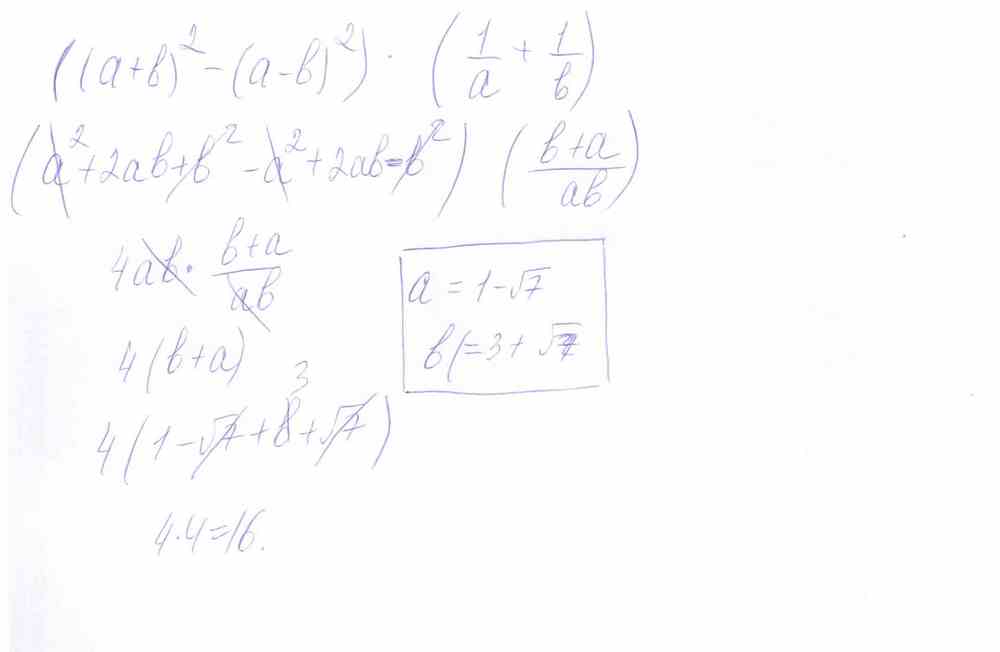 ((a+b)² - (a-b)²) · (1/a + 1/b)
(a²+2ab+b² - a²+2ab-b²) (b+a/ab)
4ab · b+a/ab
a = 1-√7
b = 3+√7
4(b+a)
4(1-√7+3+√7)
4·4=16.